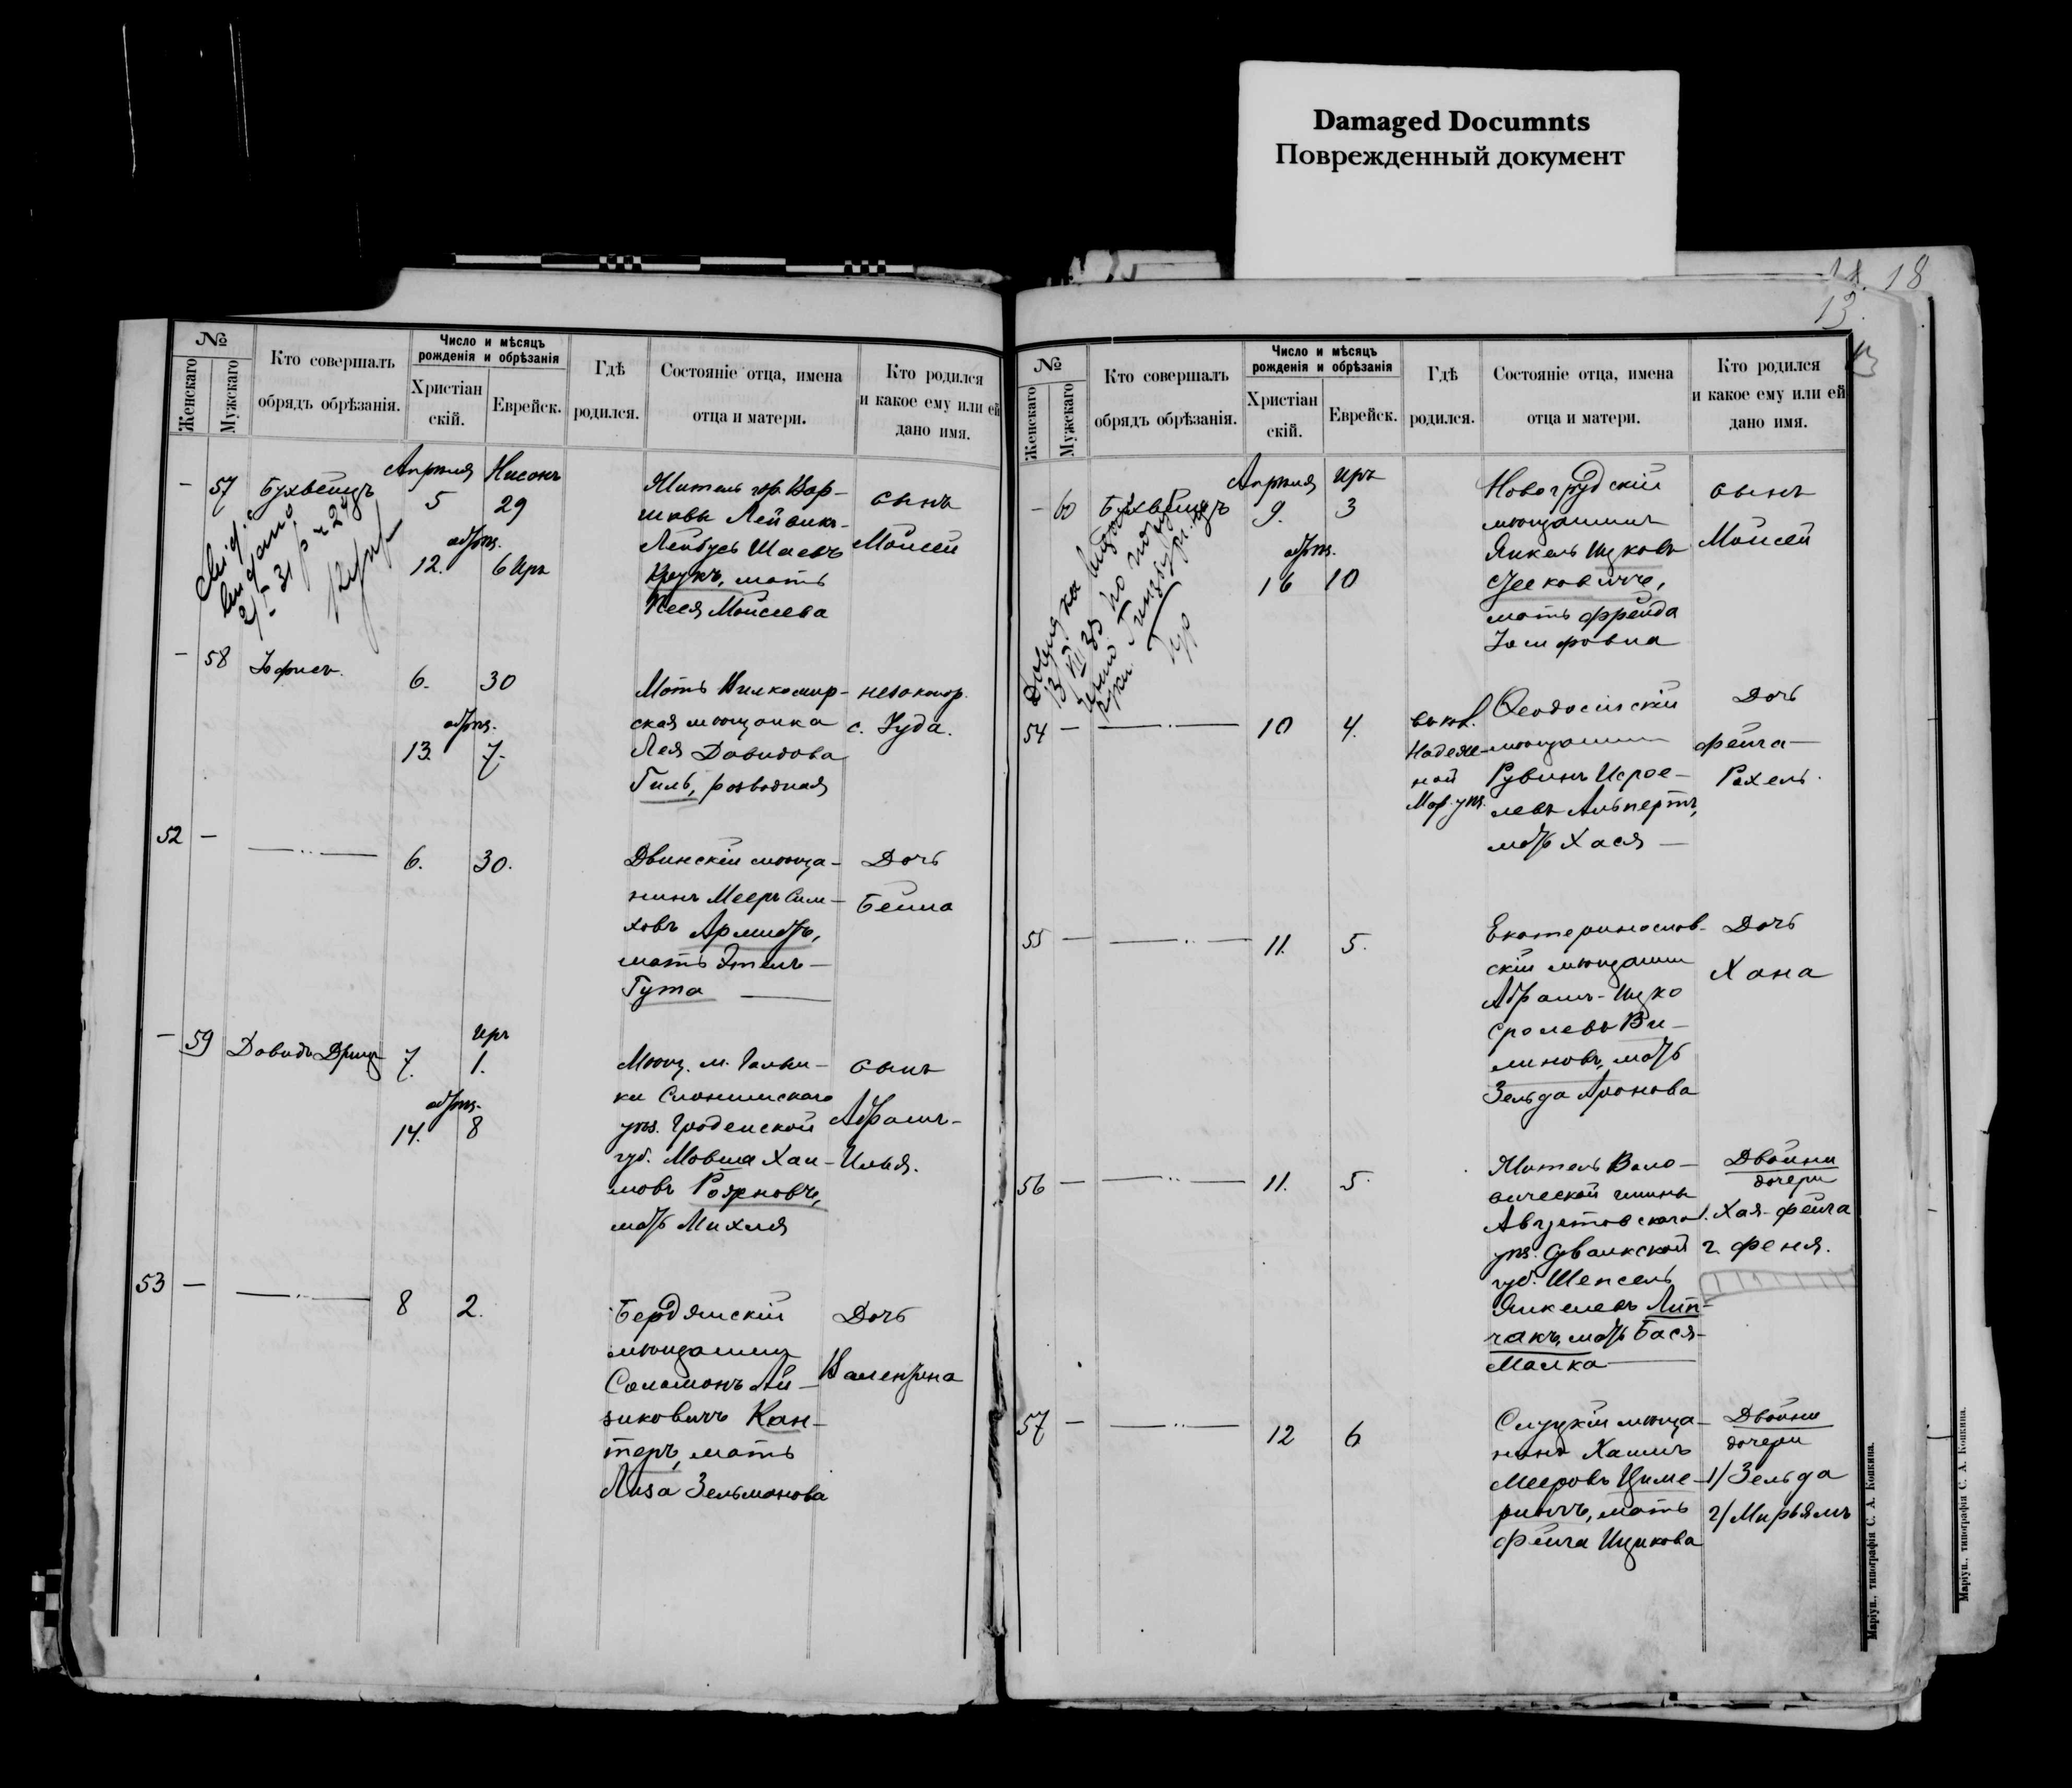 Damaged Documnts
Поврежденный документ
18
13.
№
Женскаго
Мужскаго
Кто совершалъ
обрядъ обрѣзанія.
Число и мѣсяцъ
рожденія и обрѣзанія
Христіан
скій.
Еврейск.
Гдѣ
родился.
Состояніе отца, имена
отца и матери.
Кто родился
и какое ему или ей
дано имя.
— 57
Апрѣля
Нисонъ
5
29
обрѣз.
12.
6 Иръ
Житель гор. Вар-
шавы Лейвикъ-
Лейбусь Шаевъ
Крукъ, мать
Песя Моисеева
сынъ
Моисей
— 58
6.
30
обрѣз.
13.
7.
Мать Вилкомир-
ская мѣщанка
Лея Давидова
Гиль, разводная
незаконор.
с. Іуда.
52 —
6.
30.
Двинскій мѣща-
нинъ Мееръ Сим-
ховъ
мать Этель-
Гута
Дочь
Бейла
— 59
Давидъ
7.
Иръ
1.
обрѣз.
14.
8
Мѣщ. м.
ки Слонимскаго
уѣз. Гроденской
губ. Мовша Хаи-
мовъ
мать Михля
сынъ
Абрамъ-
Илья.
53 —
8
2.
Бердянскій
мѣщанинъ
Соломонъ Ай-
зиковичъ Кан-
теръ, мать
Лиза Зельманова
Дочь
Валентина
№
Женскаго
Мужскаго
Кто совершалъ
обрядъ обрѣзанія.
Число и мѣсяцъ
рожденія и обрѣзанія
Христіан
скій.
Еврейск.
Гдѣ
родился.
Состояніе отца, имена
отца и матери.
Кто родился
и какое ему или ей
дано имя.
— 60
Апрѣля
Иръ
9.
3
обрѣз.
16
10
Новогрудскій
мѣщанинъ
Янкель Ицковъ
мать Фрейда
Іосифовна
сынъ
Моисей
54 —
10
4.
въ кол.
Надеж-
ной
Мар. уѣз.
Ѳеодосійскій
мѣщанинъ
Рувинъ Исрое-
левъ Альпертъ,
мать Хася —
Дочь
Фейга-
Рахель.
55 —
11.
5.
Екатеринослав-
скій мѣщанин
Абрамъ-Ицко
Сролевъ Ви-
линовъ, мать
Зельда Аронова
Дочь
Хана
56 —
11.
5.
Житель Воло-
вической гмины
Августовскаго
уѣз. Сувалкской
губ. Шепсель
Янкелевъ Лип-
чакъ, мать Бася-
Малка
Двойни
дочери
1. Хая-Фейга
2. Феня.
57 —
12
6
Слуцкій мѣща-
нинъ Хаимъ
Мееровъ Циме-
ринъ, мать
Фейга Ицикова
Двойни
дочери
1/ Зельда
2/ Мирьямъ
Маріуп., типографія С. А. Копкина.
Маріуп., типографія С. А. Копкина.